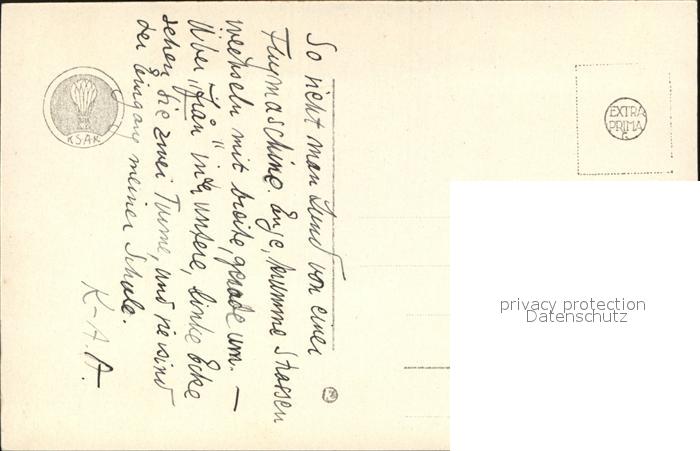 So sieht man Lund von einer
Flugmaschine. Enge, krumme Strassen
wechseln mit breite, gerade um. —
Über „från" in der untere, linke Ecke
sehen Sie zwei Turme, und sie sind
der Eingang meiner Schule.
K-A. A.
KSAK
EXTRA
PRIMA
privacy protection
Datenschutz